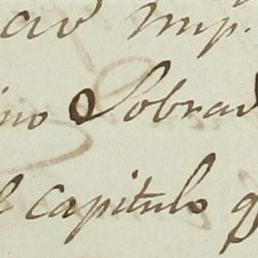 Imp.
ino Sobrad
l capitulo q